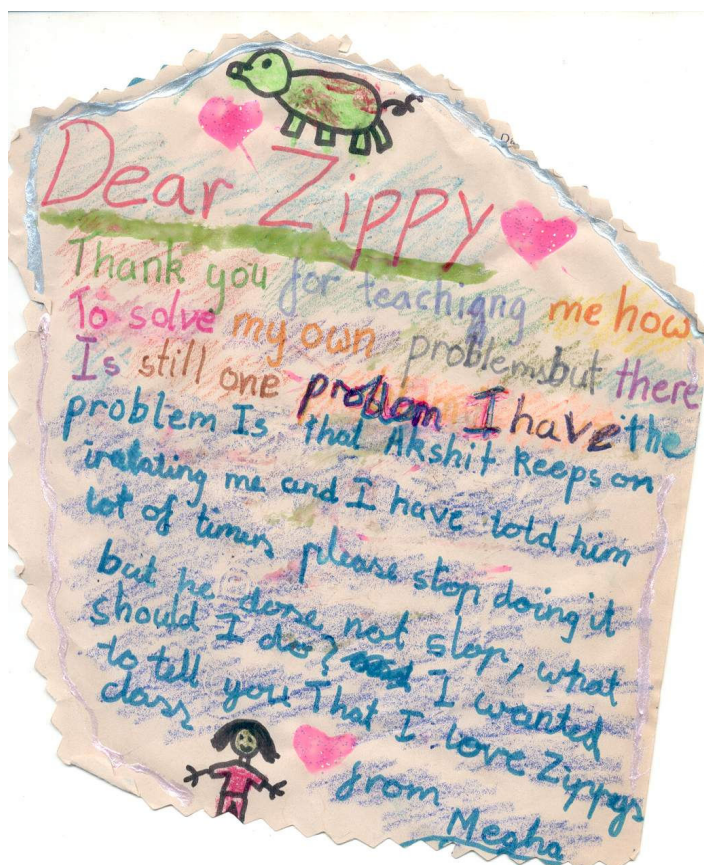 Dear Zippy
Thank you for teachigng me how
To solve my own problems but there
Is still one problem I have the
problem Is that Akshit keeps on
iretating me and I have told him
lot of times please stop doing it
but he dose not stop, what
should I do? I wanted
to tell you That I love Zippys
class
from
Megha